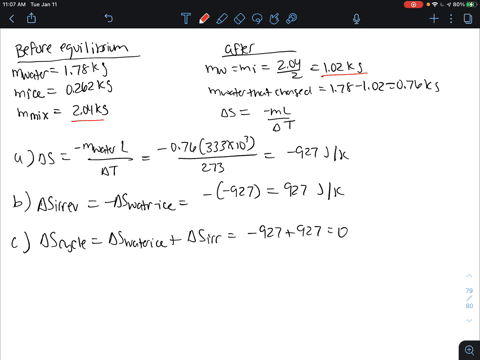 11:07 AM Tue Jan 11
80%
Before equilibrium
after
mwater = 1.78 kg
mice = 0.262 kg
mmix = 2.04 kg
mw = mi = 2.04/2 = 1.02 kg
mwater that changed = 1.78 - 1.02 = 0.76 kg
ΔS = -mL/ΔT
a) ΔS = -mwater L/ΔT = -0.76(333×10³)/273 = -927 J/K
b) ΔSirrev = -ΔSwatr-ice = -(-927) = 927 J/K
c) ΔScycle = ΔSwaterice + ΔSirr = -927 + 927 = 0
79
/
80